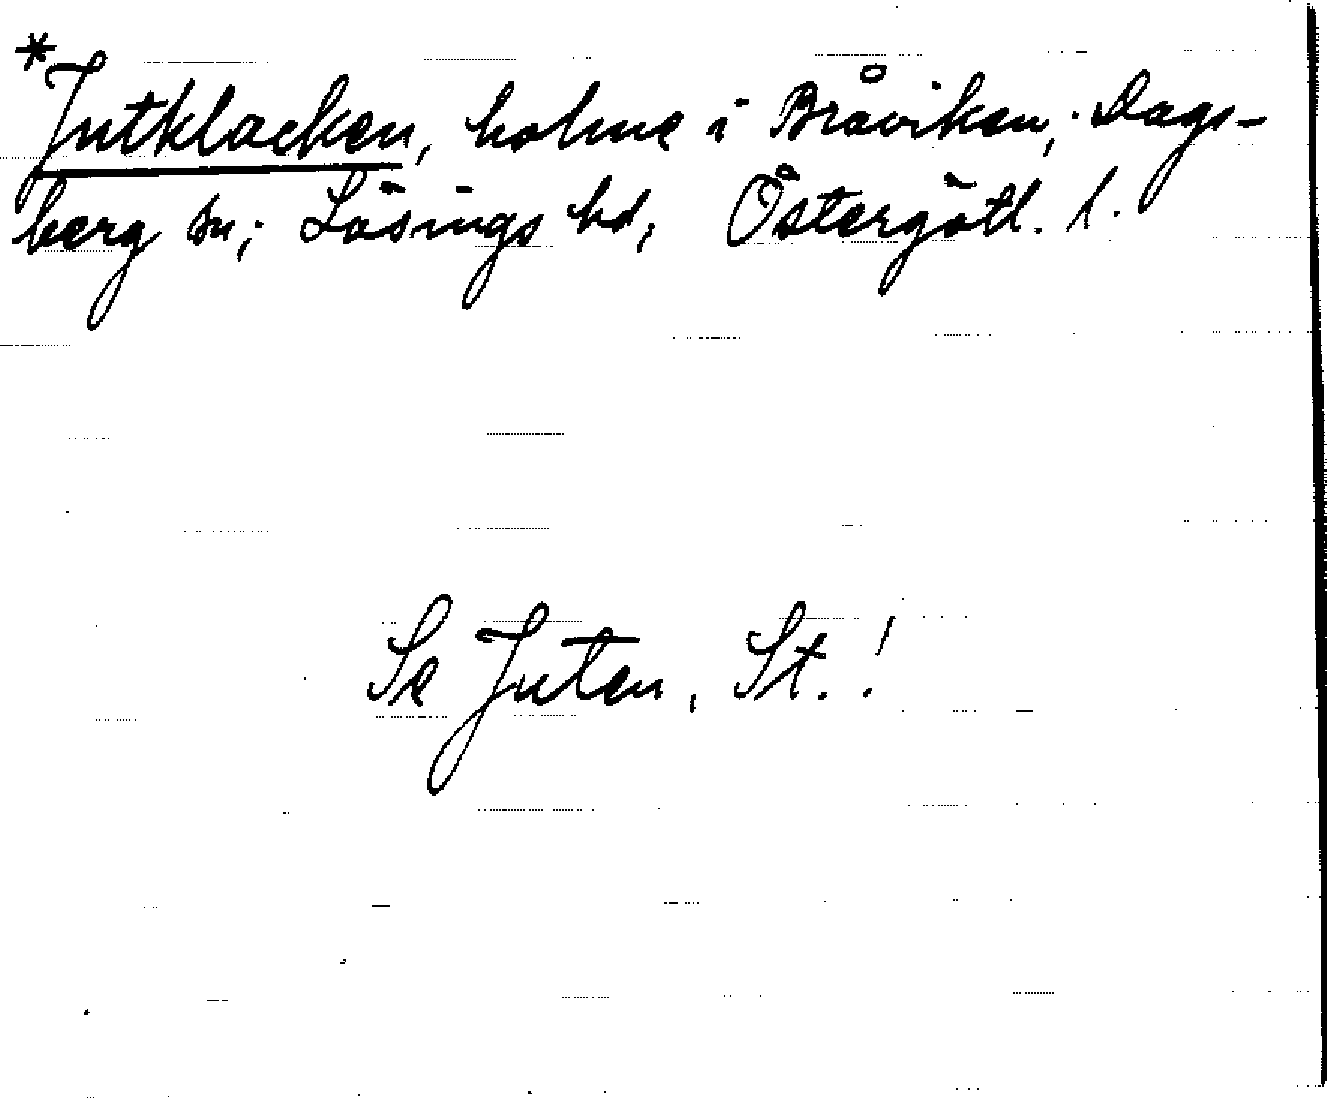 *Jutklacken, holme i Bråviken, Dags-
berg sn; Lösings hd, Östergötl. l.
Se Juten, St.!